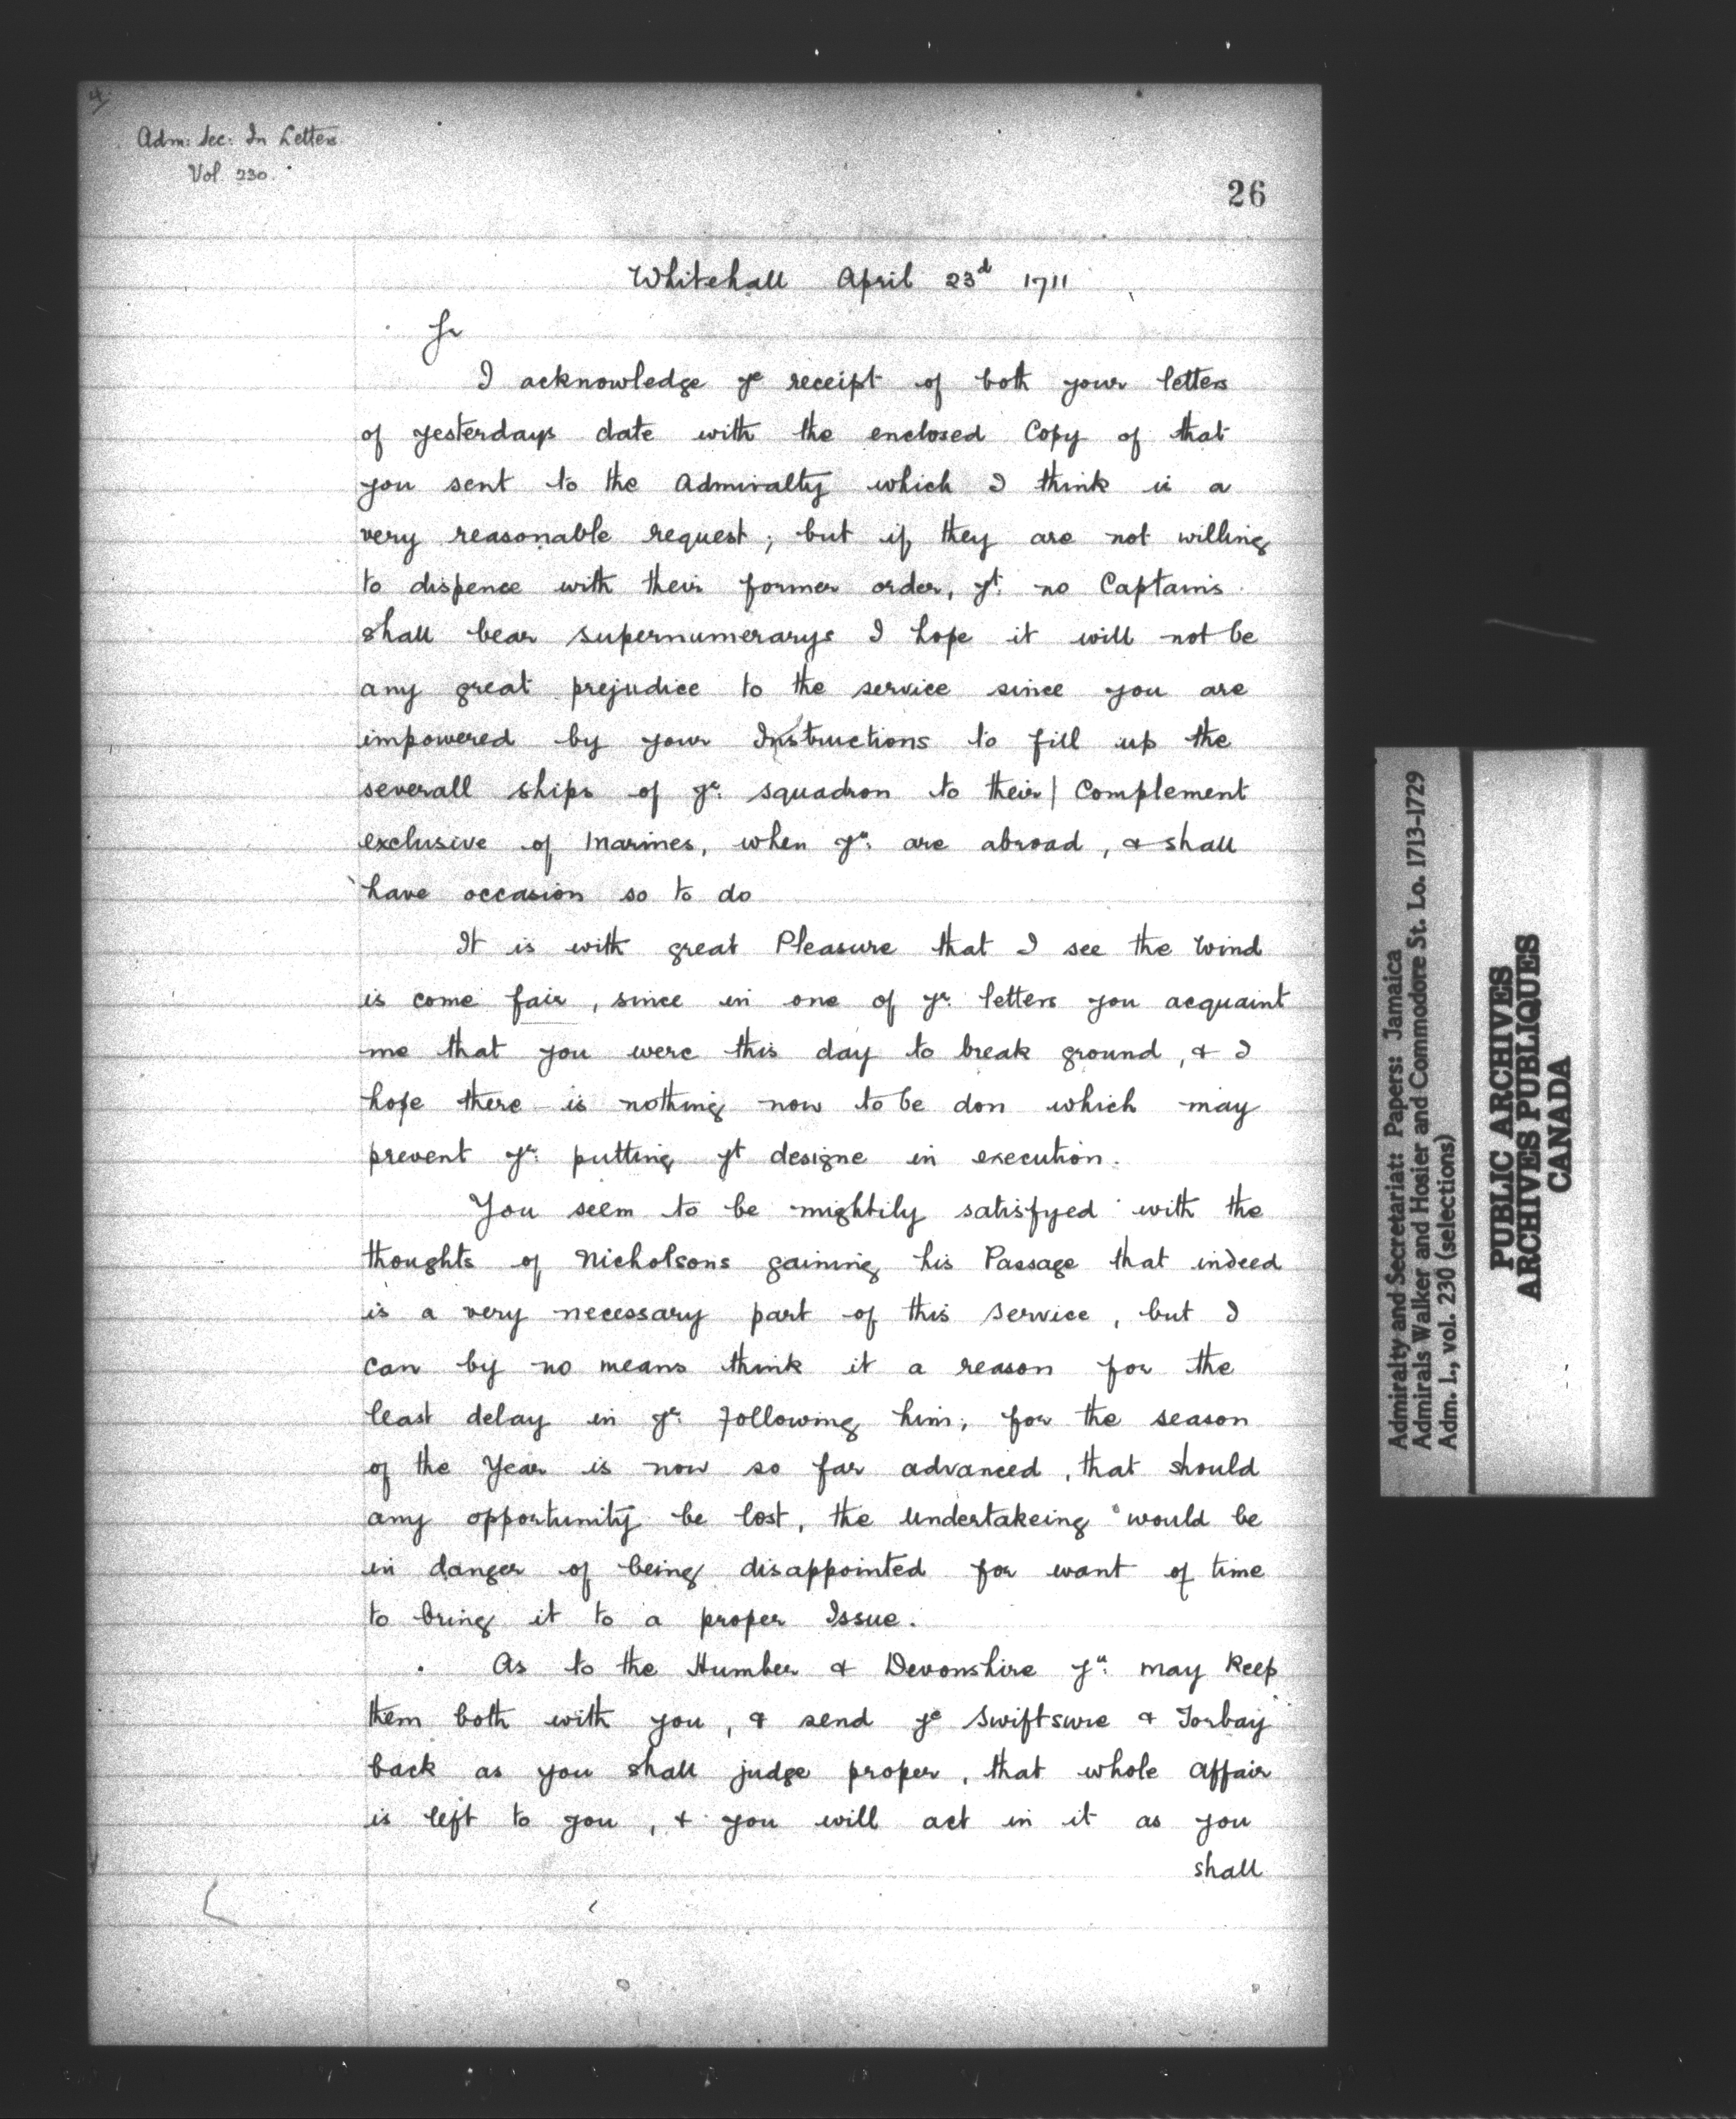 4/
Adm: Sec: In Letters
Vol. 230.
26
Whitehall April 23d 1711
Sr
I acknowledge ye receipt of both your letters
of yesterdays date with the enclosed Copy of that
you sent to the Admiralty which I think is a
very reasonable request; but if they are not willing
to dispence with their former order, yt: no Captains
shall bear supernumerarys I hope it will not be
any great prejudice to the service since you are
impowered by your Instructions to fill up the
severall ships of yr: squadron to their Complement
exclusive of Marines, when yu: are abroad, & shall
have occasion so to do
It is with great Pleasure that I see the Wind
is come fair, since in one of yr: letters you acquaint
me that you were this day to break ground, & I
hope there is nothing now to be don which may
prevent yr: putting yt designe in execution.
You seem to be mightily satisfyed with the
thoughts of Nicholsons gaining his Passage that indeed
is a very necessary part of this Service, but I
can by no means think it a reason for the
least delay in yr: following him, for the season
of the Year is now so far advanced, that should
any opportunity be lost, the Undertakeing would be
in danger of being disappointed for want of time
to bring it to a proper Issue.
As to the Humber & Devonshire yu: may keep
them both with you, & send ye Swiftsure & Torbay
back as you shall judge proper, that whole affair
is left to you, & you will act in it as you
shall
Admiralty and Secretariat: Papers: Jamaica
Admirals Walker and Hosier and Commodore St. Lo. 1713-1729
Adm. 1., vol. 230 (selections)
PUBLIC ARCHIVES
ARCHIVES PUBLIQUES
CANADA